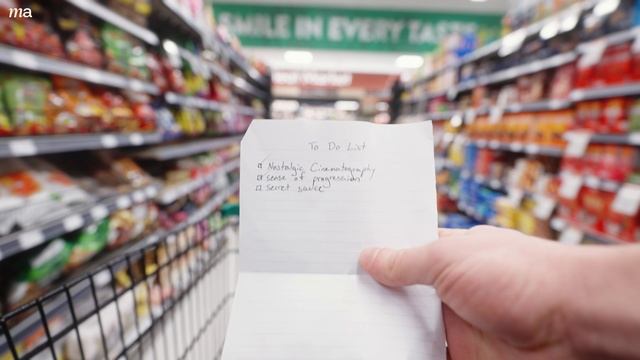 ma
SMILE IN EVERY TAST
To Do List
Nostalgic Cinematography
sense of progression
secret sauce